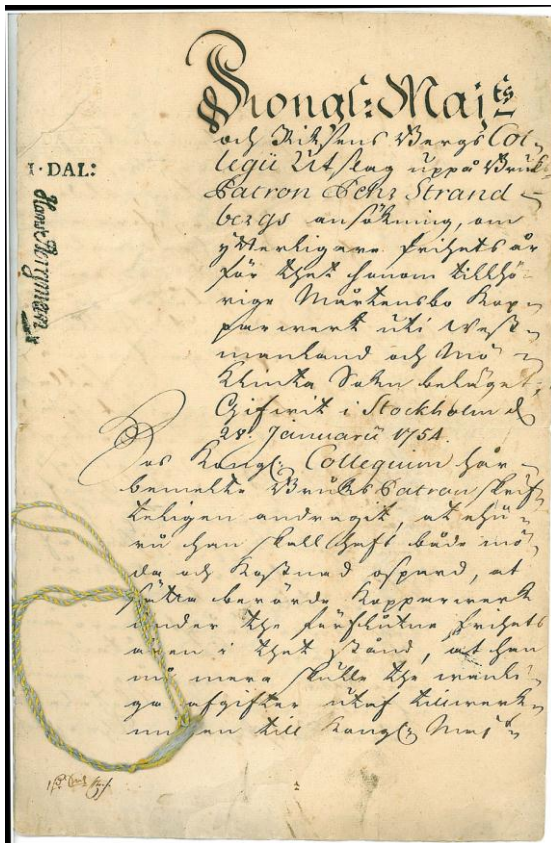 Kongl: Maj:ts
och Riksens Bergs Col-
legii Utslag uppå Bruks
Patron Pehr Strand-
bergs ansökning, om
ytterligare frihets år
för thet honom tillhö-
rige Mårtensbo Kop-
parwerk uti West-
manland och
Klinta Sokn beläget;
Gifwit i Stockholm d.
28. Januarii 1754.
1. DAL:
Hos Kongl: Collegium har
bemelte Bruks Patron skrif-
teligen andragit, at ehu-
ru han skall haft både mö-
da och kostnad ospard, at
sättia berörde Kopparwerk
under the förflutne frihets
åren i thet stånd, at han
nu mera skulle the wanli-
ga afgifter utaf tillwerk-
ningen till Kongl: Maj:t